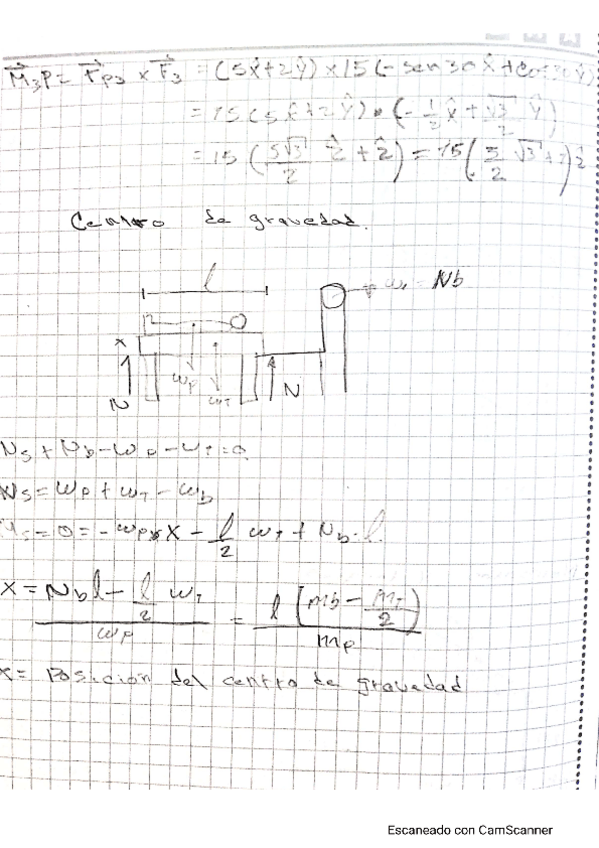 M⃗₃P = r⃗p₃ × F⃗₃ = (5x̂+2ŷ) × 15 (-sen 30 x̂ + cos 30 ŷ)
= 15 (5x̂+2ŷ) • (-1/2 x̂ + √3/2 ŷ)
= 15 (5√3/2 ẑ + ẑ) = 15 (5/2 √3 + 1) ẑ
Centro de gravedad.
l
Nb
x
wp
wT
N
N
Ns + Nb - wp - wT = 0
Ns = wp + wT - wb
Ms = 0 = -wp x - l/2 wT + Nb · l
x = (Nb l - l/2 wT) / wp = l (mb - mT/2) / mp
x = Posición del centro de gravedad
Escaneado con CamScanner